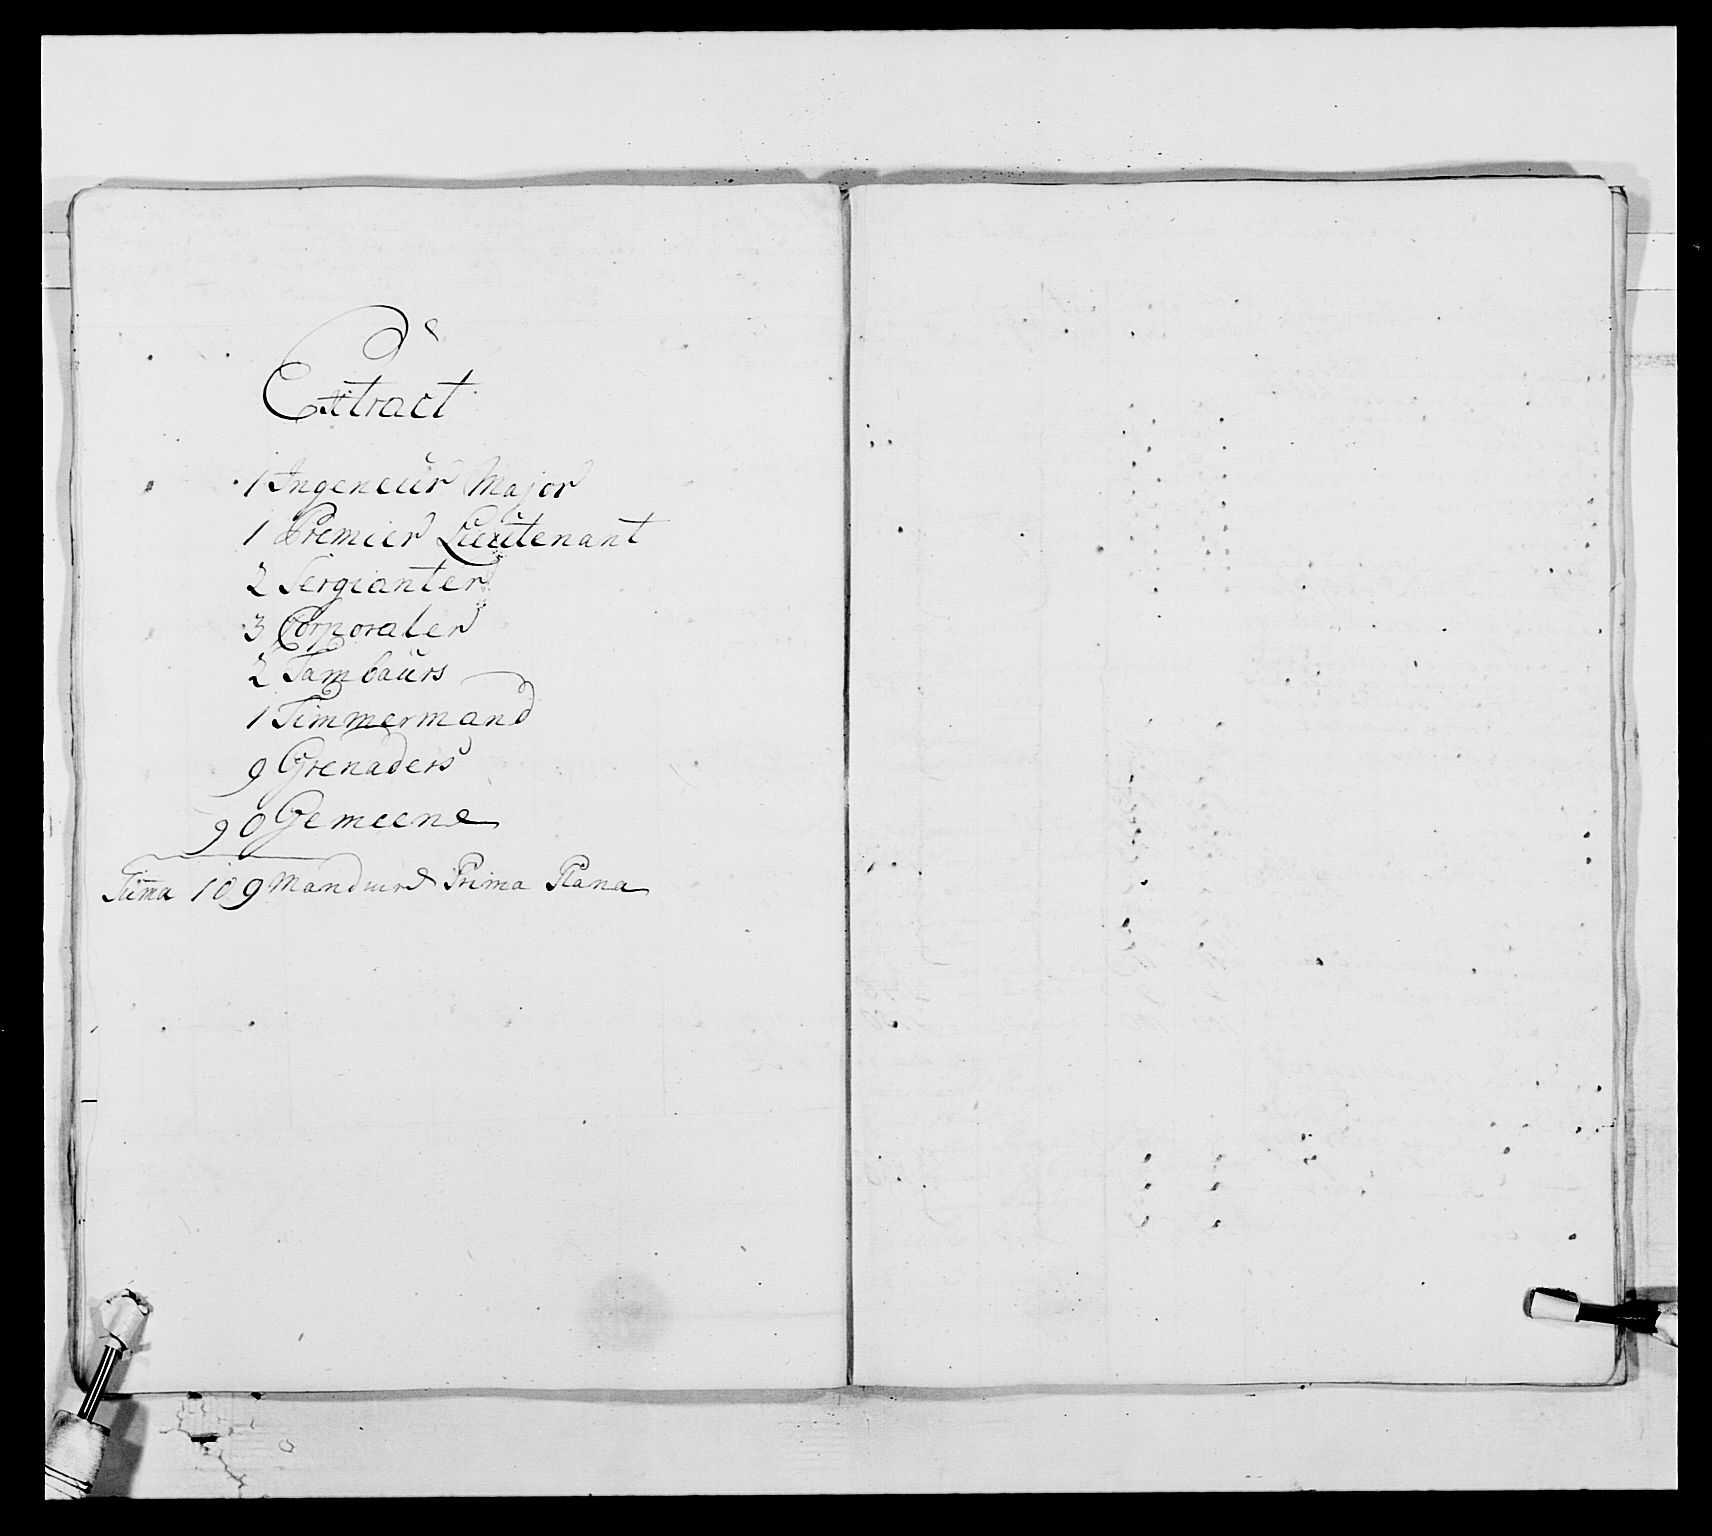 Extract
1 Ingeneur Major
1 Premier Lieutenant
2 Sergianter
3 Corporaler
2 Tambours
1 Timmermand
9 Grenaders
90 Gemeene
Suma 109 Mand uden Prima Plana